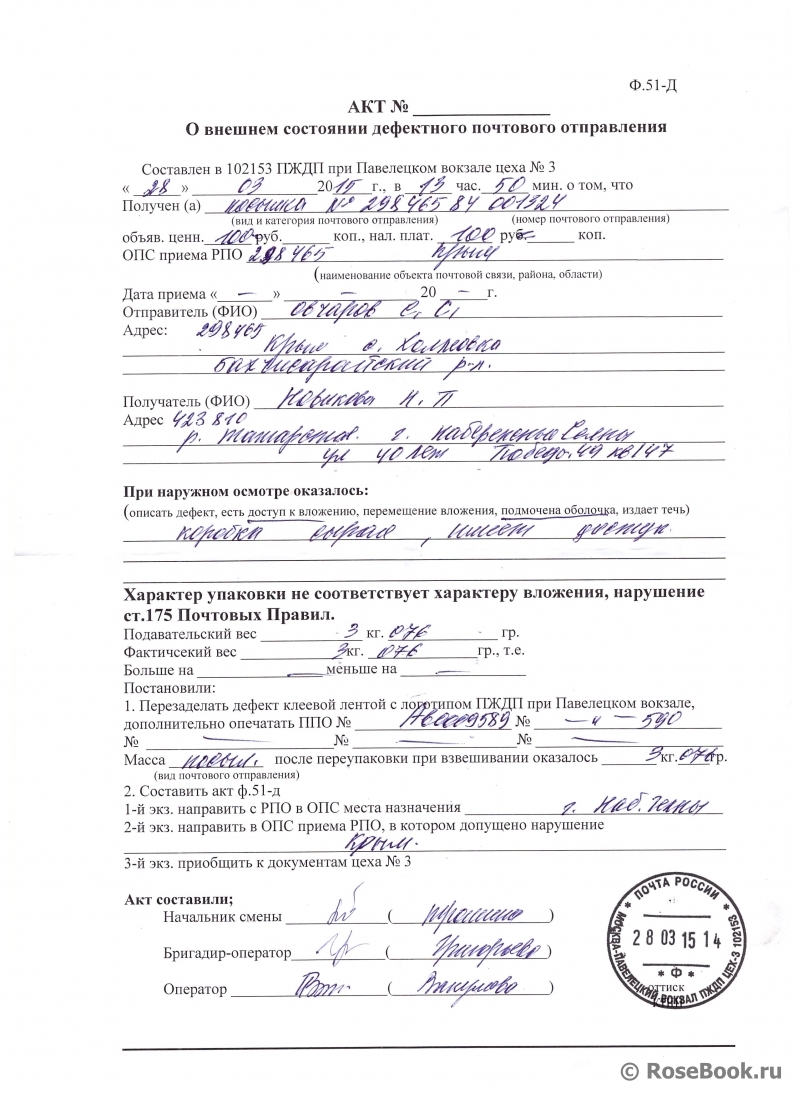 Ф.51-Д
АКТ № ______
О внешнем состоянии дефектного почтового отправления
Составлен в 102153 ПЖДП при Павелецком вокзале цеха № 3
« 28 » 03 2015 г., в 13 час. 50 мин. о том, что
Получен (а) посылка № 298465 84 001324
(вид и категория почтового отправления) (номер почтового отправления)
объяв. ценн. 100 руб. ______ коп., нал. плат. 100 руб.= ______ коп.
ОПС приема РПО 298465 Крым
(наименование объекта почтовой связи, района, области)
Дата приема « – » – 20 – г.
Отправитель (ФИО) Овчаров С. С.
Адрес: 298465
Крым с. Холмовка
Бахчисарайский р-н.
Получатель (ФИО) Новикова Н. П
Адрес 423810
р. Татарстан. г. Набережные Челны
ул 40 лет Победы. 49 кв 147
При наружном осмотре оказалось:
(описать дефект, есть доступ к вложению, перемещение вложения, подмочена оболочка, издает течь)
коробка сырая, имеет доступ.
Характер упаковки не соответствует характеру вложения, нарушение
ст.175 Почтовых Правил.
Подавательский вес 3 кг. 076 гр.
Фактичсекий вес 3 кг. 076 гр., т.е.
Больше на — меньше на —
Постановили:
1. Перезаделать дефект клеевой лентой с логотипом ПЖДП при Павелецком вокзале,
дополнительно опечатать ППО № 0009589 № – " – 590
№ — № — № —
Масса посыл. после переупаковки при взвешивании оказалось 3 кг. 076 гр.
(вид почтового отправления)
2. Составить акт ф.51-д
1-й экз. направить с РПО в ОПС места назначения г. Наб. Челны
2-й экз. направить в ОПС приема РПО, в котором допущено нарушение
Крым.
3-й экз. приобщить к документам цеха № 3
Акт составили;
Начальник смены ( )
Бригадир-оператор ( Григорьева )
Оператор ( Вакулова )
ПОЧТА РОССИИ
28 03 15 14
* Ф *
МОСКВА-ПАВЕЛЕЦКИЙ ВОКЗАЛ ПЖДП ЦЕХ-3 102153
оттиск
КПШ
© RoseBook.ru